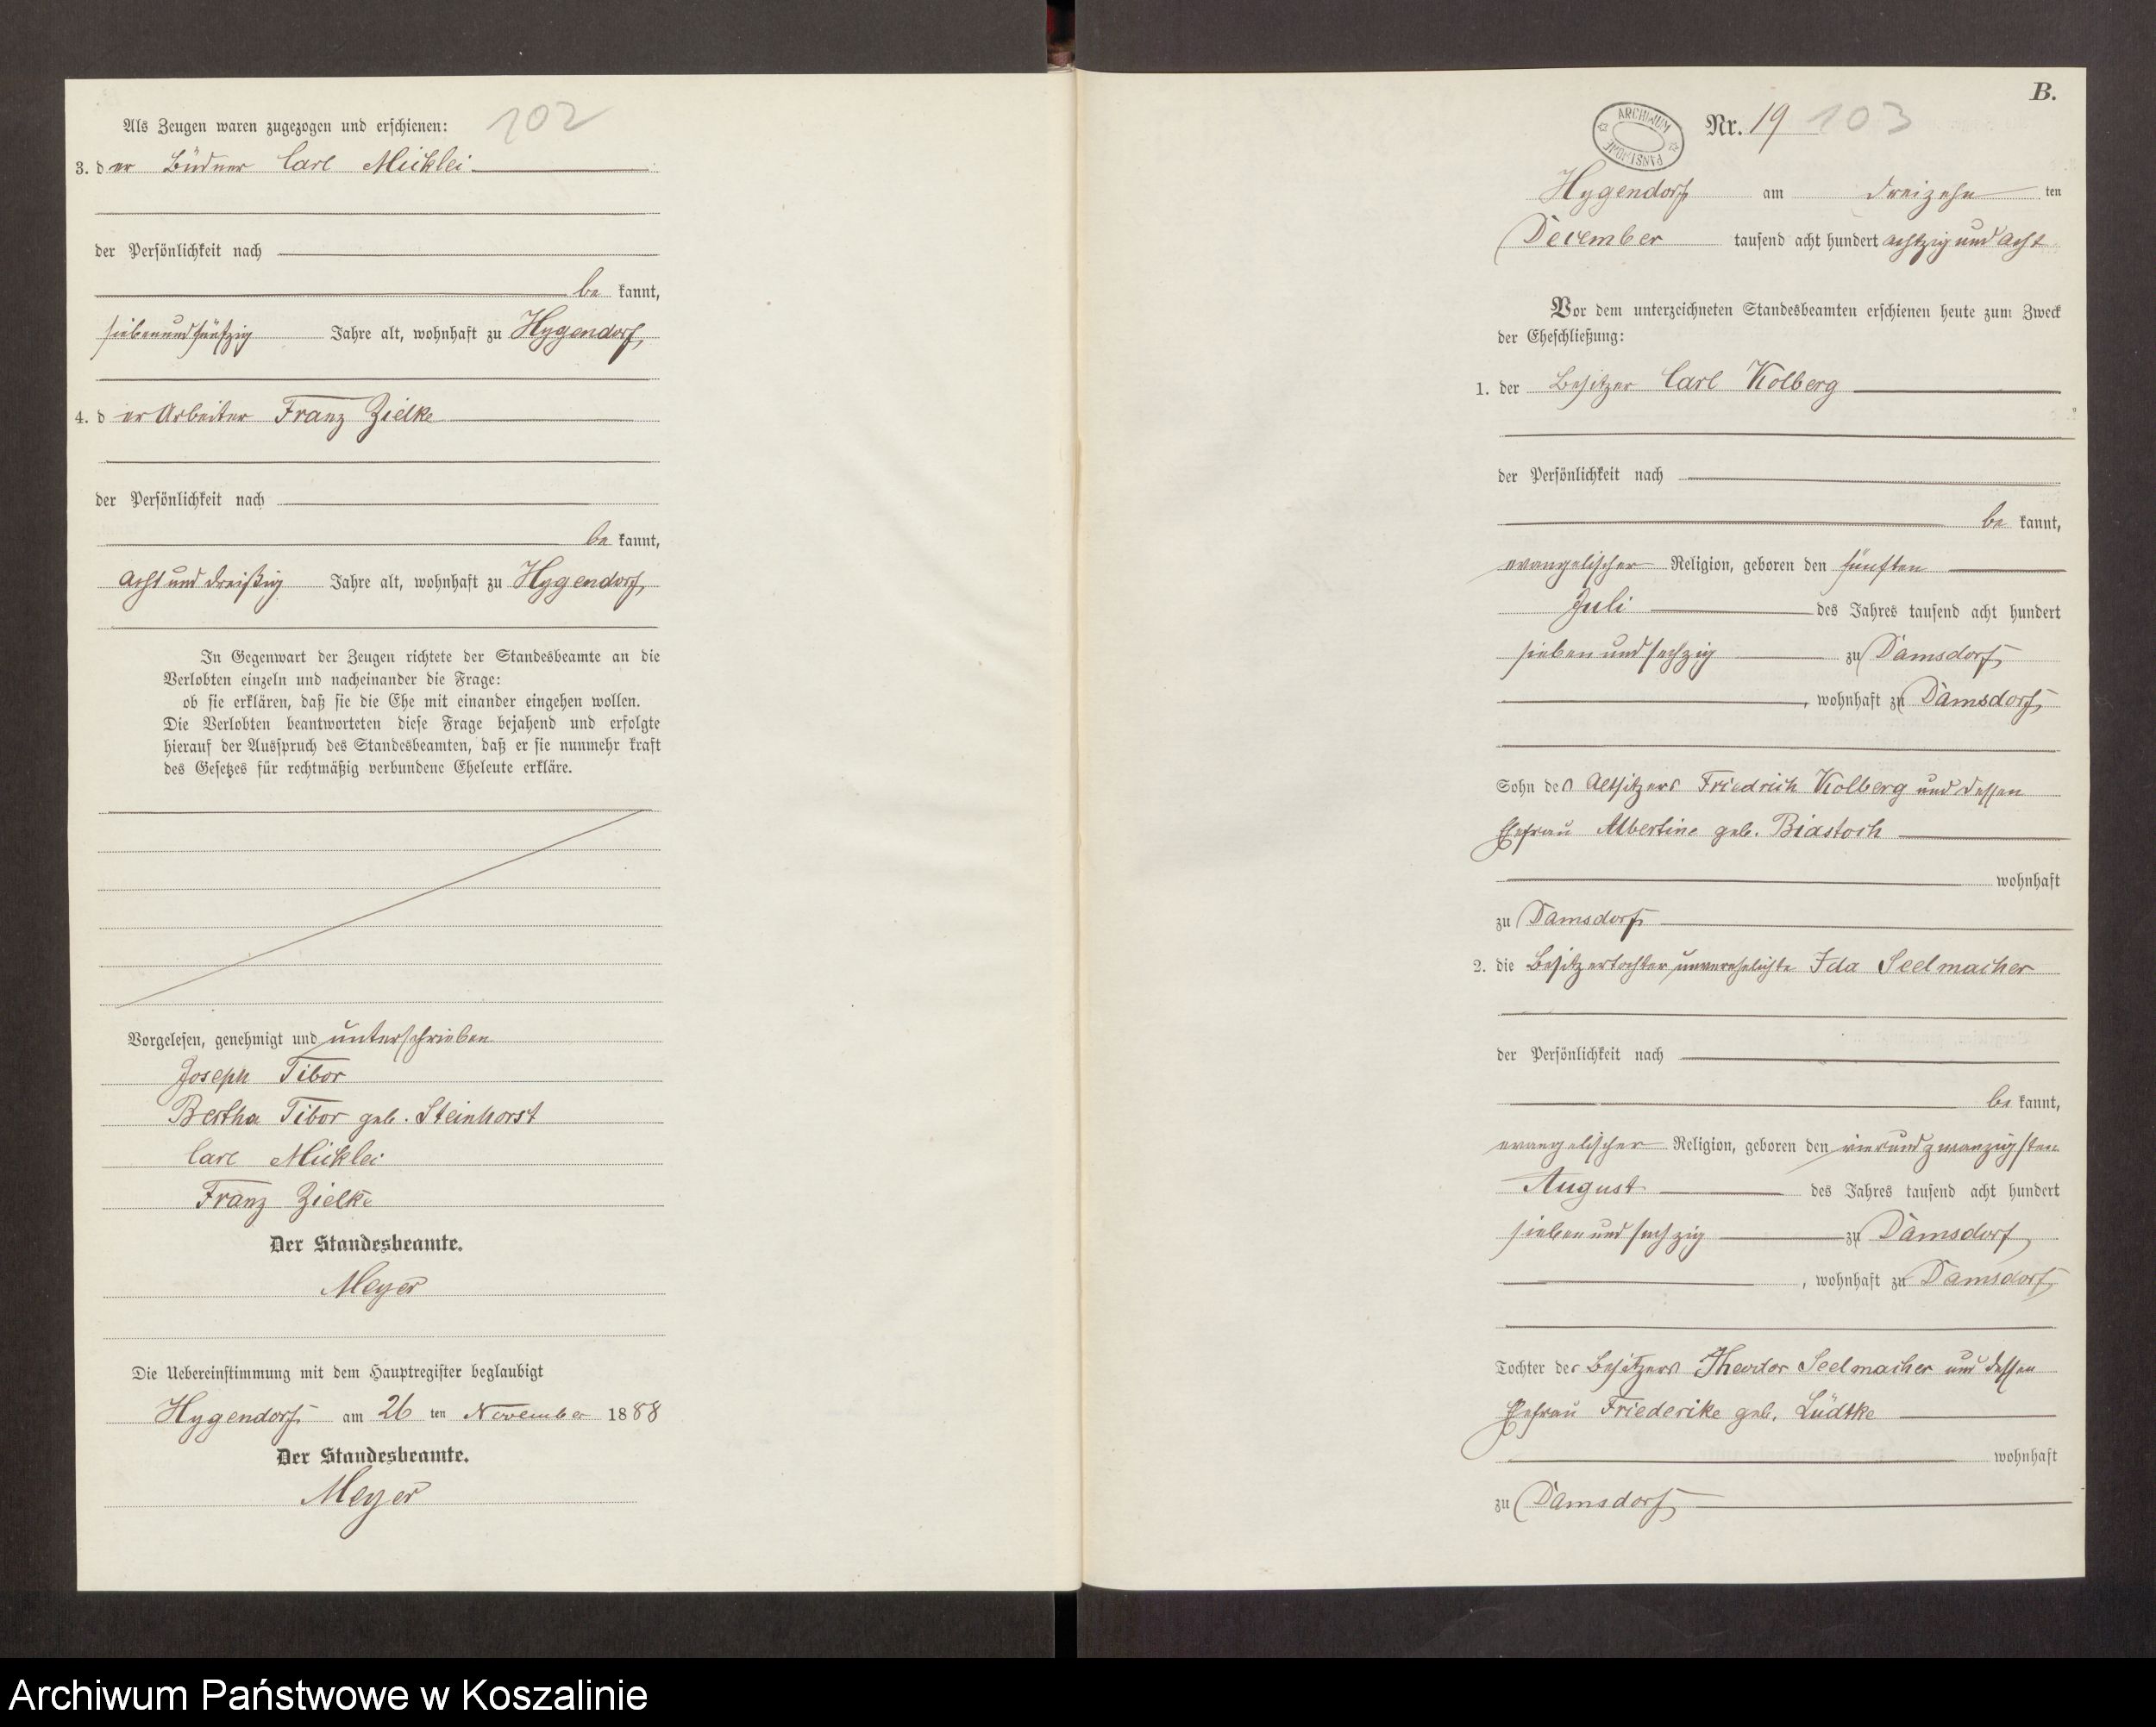 102
Als Zeugen waren zugezogen und erschienen:
3. der Büdner Carl Micklei
der Persönlichkeit nach
be kannt,
siebenundfünfzig Jahre alt, wohnhaft zu Hygendorf,
4. der Arbeiter Franz Zielke
der Persönlichkeit nach
be kannt,
acht und dreißig Jahre alt, wohnhaft zu Hygendorf,
In Gegenwart der Zeugen richtete der Standesbeamte an die
Verlobten einzeln und nacheinander die Frage:
ob sie erklären, daß sie die Ehe mit einander eingehen wollen.
Die Verlobten beantworteten diese Frage bejahend und erfolgte
hierauf der Ausspruch des Standesbeamten, daß er sie nunmehr kraft
des Gesetzes für rechtmäßig verbundene Eheleute erkläre.
Vorgelesen, genehmigt und unterschrieben
Joseph Tibor
Bertha Tibor geb. Steinhorst
Carl Micklei
Franz Zielke
Der Standesbeamte.
Meyer
Die Uebereinstimmung mit dem Hauptregister beglaubigt
Hygendorf am 26 ten November 1888
Der Standesbeamte.
Meyer
B.
ARCHIWUM PAŃSTWOWE
Nr. 19 103
Hygendorf am dreizehn ten
December tausend acht hundert achtzig und acht
Vor dem unterzeichneten Standesbeamten erschienen heute zum Zweck
der Eheschließung:
1. der Besitzer Carl Kolberg
der Persönlichkeit nach
be kannt,
evangelischer Religion, geboren den fünften
Juli des Jahres tausend acht hundert
sieben und sechzig zu Damsdorf,
, wohnhaft zu Damsdorf,
Sohn des Altsitzers Friedrich Kolberg und dessen
Ehefrau Albertine geb. Biastoch
wohnhaft
zu Damsdorf
2. die Besitzertochter unverehelichte Ida Seelmacher
der Persönlichkeit nach
be kannt,
evangelischer Religion, geboren den vierundzwanzigsten
August des Jahres tausend acht hundert
sieben und sechzig zu Damsdorf,
, wohnhaft zu Damsdorf,
Tochter des Besitzers Theodor Seelmacher und dessen
Ehefrau Friederike geb. Lüdtke
wohnhaft
zu Damsdorf
Archiwum Państwowe w Koszalinie